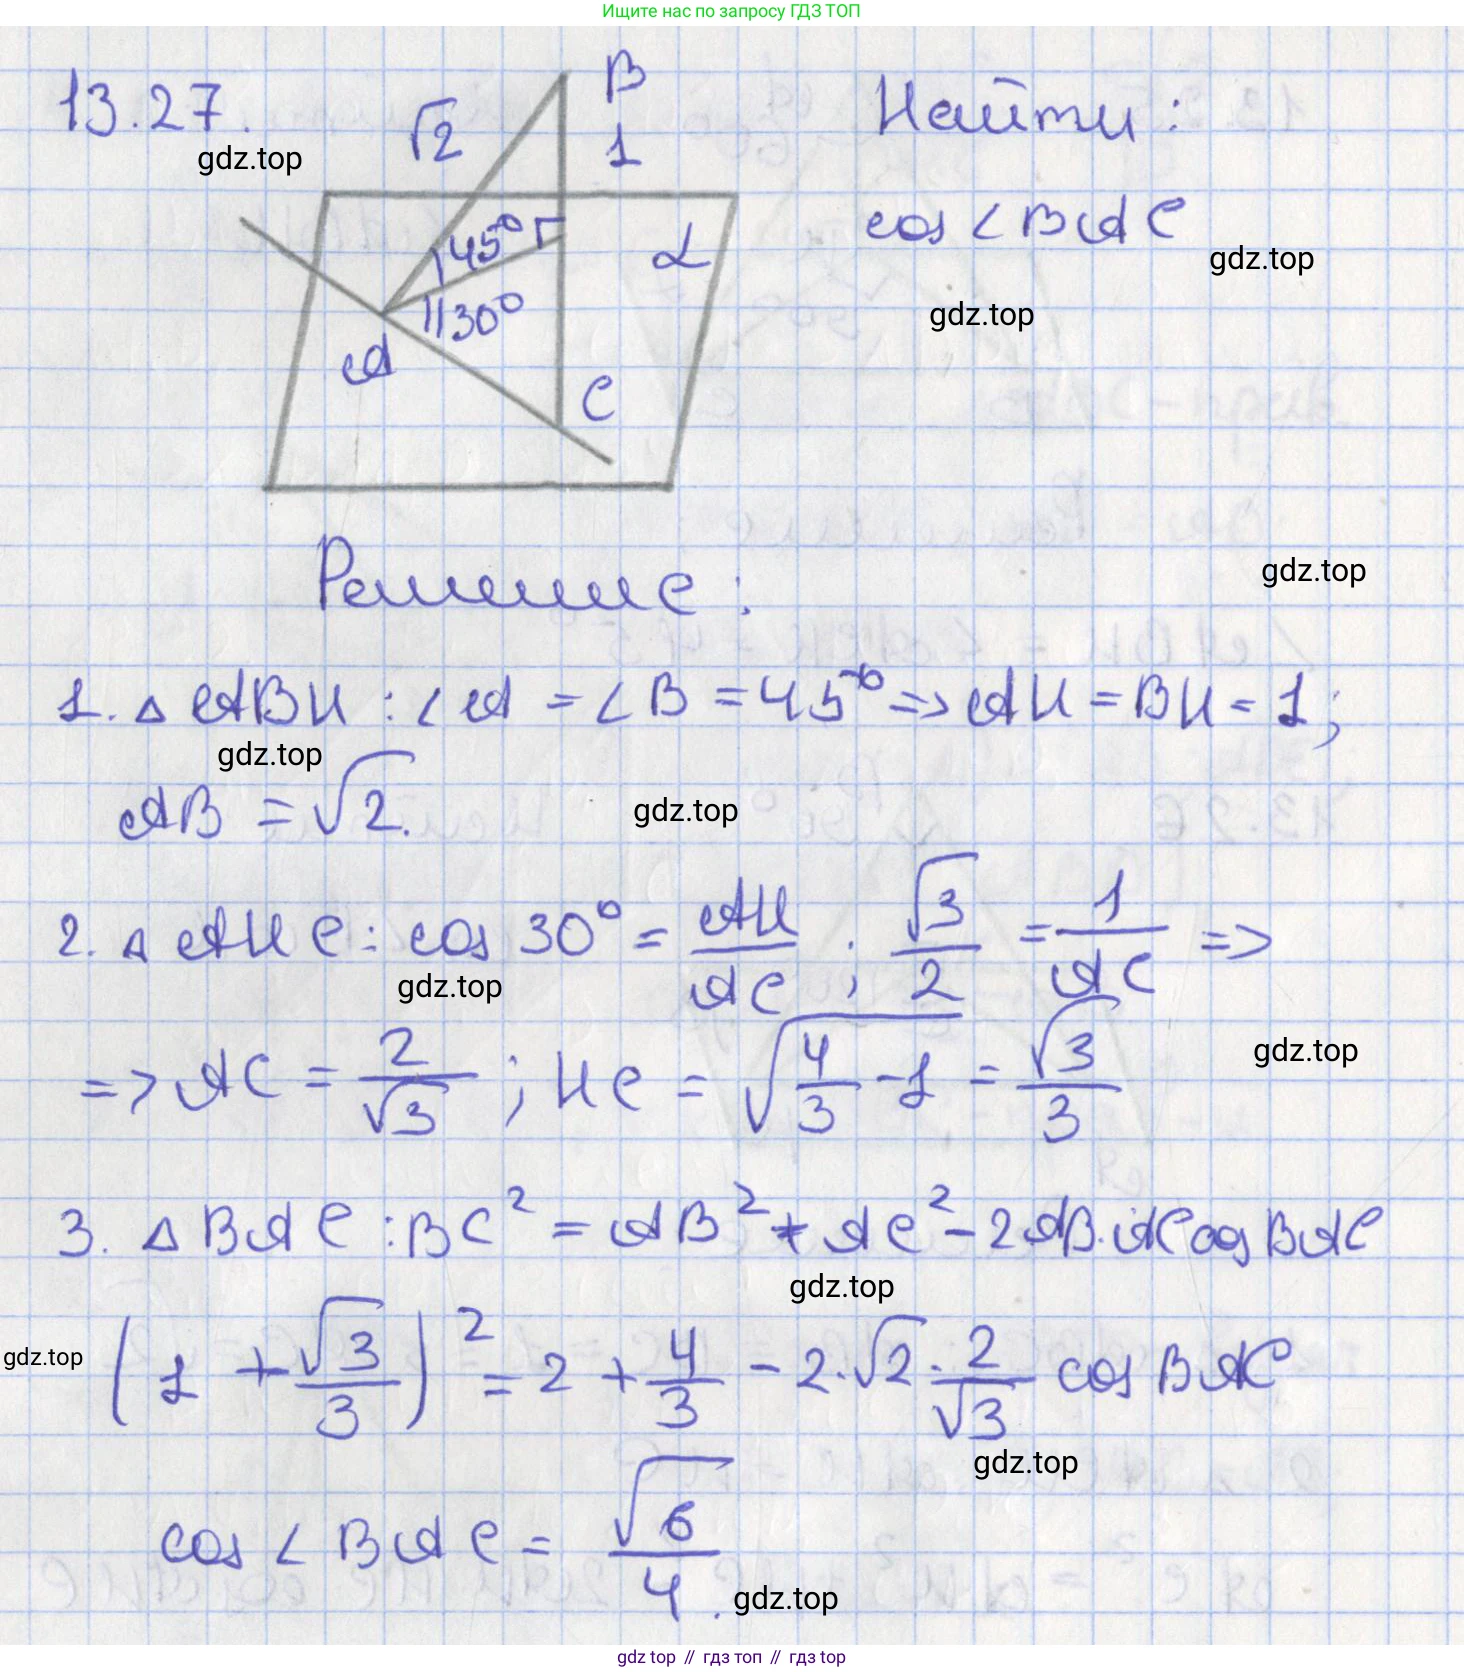 Ищите нас по запросу ГДЗ ТОП
13.27.
gdz.top
√2
B
1
45°
30°
A
C
α
Найти:
cos ∠BAC
gdz.top
gdz.top
Решение:
gdz.top
1. △ ABH : ∠A = ∠B = 45° => AH = BH = 1;
gdz.top
AB = √2.
gdz.top
2. △ AHC: cos 30° = AH/AC ; √3/2 = 1/AC =>
gdz.top
=> AC = 2/√3 ; HC = √(4/3 - 1) = √3/3
gdz.top
3. △ BAC : BC² = AB² + AC² - 2AB·AC cos BAC
gdz.top
gdz.top
(1 + √3/3)² = 2 + 4/3 - 2·√2·2/√3 cos BAC
gdz.top
cos ∠BAC = √6/4.
gdz.top
gdz top // гдз топ // гдз top